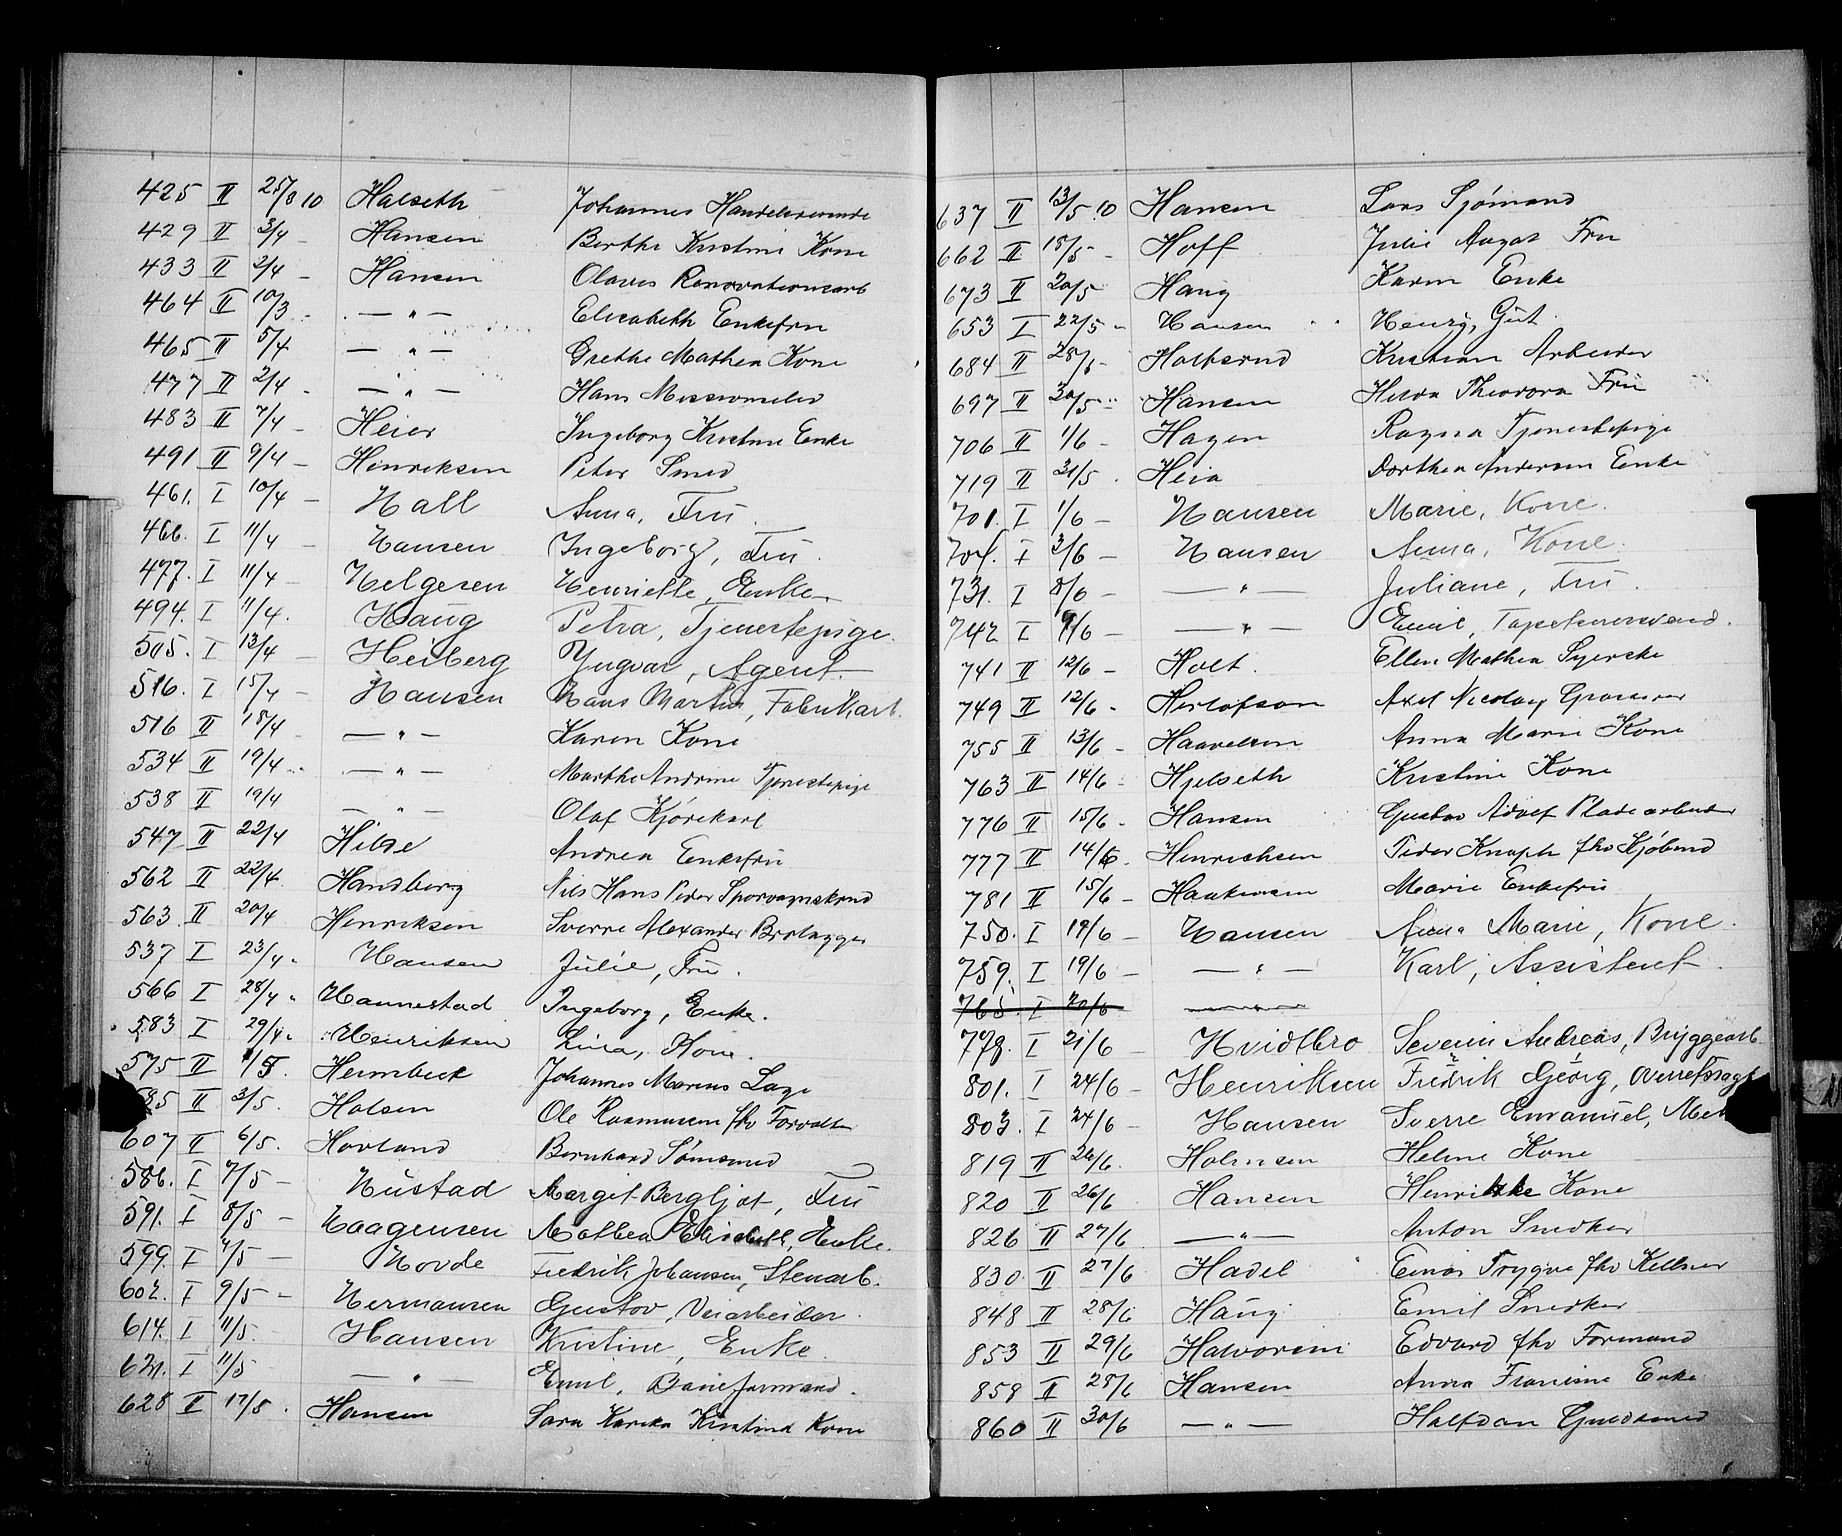 425 II 25/3 10 Halseth Johannes Handelsreisende
429 II 3/4 - Hansen Berthe Kristine Kone
433 II 2/4 - Hansen Olaves Renovationsarb
464 II 10/3 - — " — Elisabeth Enkefru
465 II 5/4 — " — Grethe Mathea Kone
477 II 2/4 - — " — Hans
483 II 7/4 - Heier Ingeborg Kristine Enke
491 II 9/4 - Henriksen Peter Smed
461. I 10/4 - Hall Anna, Fru.
466. I 11/4 - Hansen Ingeborg, Fru.
477. I 11/4 - Helgesen Henriette, Enke.
494. I 11/4. Haug Petra, Tjenestepige.
505. I 13/4 - Heiberg Yngvar, Agent.
516. I 15/4 - Hansen Hans Martin, Fabrikarb.
516 II 18/4 - — " — Karen Kone
534 II 19/4 - — " — Marthe Andrine Tjenestepige
538 II 19/4 — " — Olaf Kjørekarl
547 II 22/4 Hilse Andrea Enkefru
562 II 22/4 Handberg Nils Hans Peder Sporvognskusk
563 II 20/4 Henriksen Sverre Alexander Brolægger
537 I 23/4 " Hansen Julie, Fru.
566 I 28/4 " Hannestad Ingeborg, Enke.
583 I 29/4 " Henriksen Lina, Kone.
575 II 1/5. Hermbeck Johannes Marius
585 II 2/5. Holsen Ole Rasmussen fhv Forvalter
607 II 6/5. Hovland Bernhard
586. I 7/5 - Hustad Margit Bergljot, Fru
591. I 8/5 - Haagensen Mathea Elisabeth, Enke.
599. I 4/5 - Hovde Fredrik Johansen, Stenarb.
602. I 9/5 - Hermansen Gustav, Veiarbeider.
614. I 11/5. Hansen Kristine, Enke.
621. I 11/5 — " — Emil, Baneformand.
628 II 17/5. Hansen Sara Karika Kristine Kone
637 II 13/5 10 Hansen Lars Sjømand
662 II 18/5 - Hoff Julie August Fru
673 II 20/5 - Haug Karen Enke
653 I 22/5 - Hansen Henry, Gut.
684 II 28/5 - Holtsrud Kristian Arbeider
697 II 30/5 - Hansen Hilda Theodora Fru
706 II 1/6 - Hagen Ragna Tjenestepige
719 II 31/5. Heia Dorthea Andersen Enke
701. I 1/6 - Hansen Marie, Kone.
704. I 3/6 - Hansen Anna, Kone.
731. I 8/6 - — " — Juliane, Fru.
742 I 9/6 - — " — Emil, Tapetserersvend.
741 II 12/6 - Holt. Ellen Mathea Syerske
749 II 12/6 - Herlofson Axel Nicolay Grosserer
755 II 13/6 - Haavelsen Anna Marie Kone
763 II 14/6 - Hjelseth Kristine Kone
776 II 15/6 - Hansen Gustav Adolf Pladearbeider
777 II 14/6. Henrichsen Peder Knoph fhv Kjøbmd
781 II 15/6 - Haakensen Marie Enkefru
750. I 19/6 - Hansen Anna Marie, Kone.
759. I 19/6 - — " — Karl, Assistent.
765. I 20/6
778. I 21/6 - Hvidtbro Severin Andreas, Bryggearb.
801. I 24/6 - Henriksen Fredrik Georg, Overretssagf
803. I 24/6 - Hansen Sverre Emanuel,
819 II 26/6. Holmsen Helene Kone
820 II 26/6 Hansen Henrikke Kone
826 II 27/6. — " — Anton Snedker
830. II 27/6 Hadel Einar Trygve fhv Kellner
848 II 28/6 Haug Emil Snedker
853 II 29/6 Halvorsen Edvard fhv Formand
858 II 28/6 Hansen Anna Fransine Enke
860 II 30/6 — " — Halfdan Guldsmed